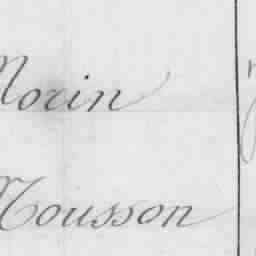 Morin
Mousson